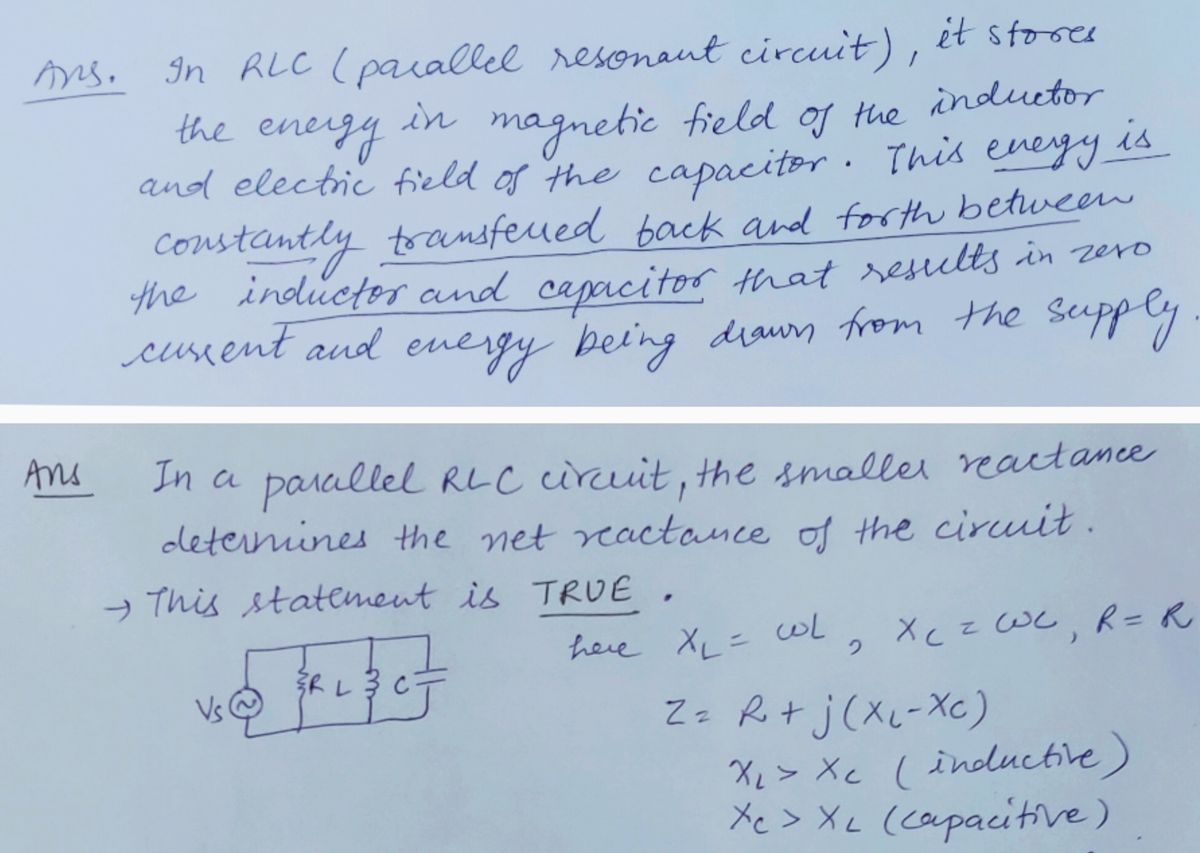 Ans. In RLC (parallel resonant circuit), it stores
the energy in magnetic field of the inductor
and electric field of the capacitor. This energy is
constantly transferred back and forth between
the inductor and capacitor that results in zero
current and energy being drawn from the supply.
Ans In a parallel RLC circuit, the smaller reactance
determines the net reactance of the circuit.
→ This statement is TRUE.
here XL = ωL, XC = ωC, R = R
Vs R L C
Z = R + j(XL-XC)
XL > XC (inductive)
XC > XL (capacitive)